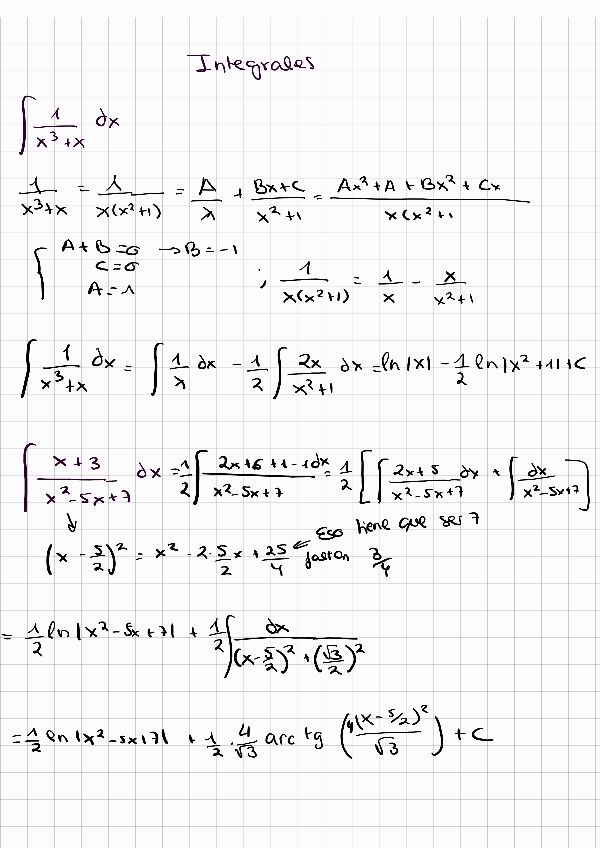 Integrales
∫ 1/(x³+x) dx
1/(x³+x) = 1/(x(x²+1)) = A/x + (Bx+C)/(x²+1) = (Ax²+A+Bx²+Cx)/(x(x²+1
{ A+B=0 → B=-1
C=0
A=1
; 1/(x(x²+1)) = 1/x - x/(x²+1)
∫ 1/(x³+x) dx = ∫ 1/x dx - 1/2 ∫ 2x/(x²+1) dx = ln|x| - 1/2 ln|x²+1| + C
∫ (x+3)/(x²-5x+7) dx = 1/2 ∫ (2x+6+1-1)/(x²-5x+7) dx = 1/2 [ ∫ (2x+5)/(x²-5x+7) dx + ∫ dx/(x²-5x+7) ]
↓
(x - 5/2)² = x² - 2·5/2 x + 25/4 ← Eso tiene que ser 7
faltan 3/4
= 1/2 ln|x²-5x+7| + 1/2 ∫ dx/((x-5/2)² + (√3/2)²)
= 1/2 ln|x²-5x+7| + 1/2 · 4/√3 arc tg (4(x-5/2)²/√3) + C